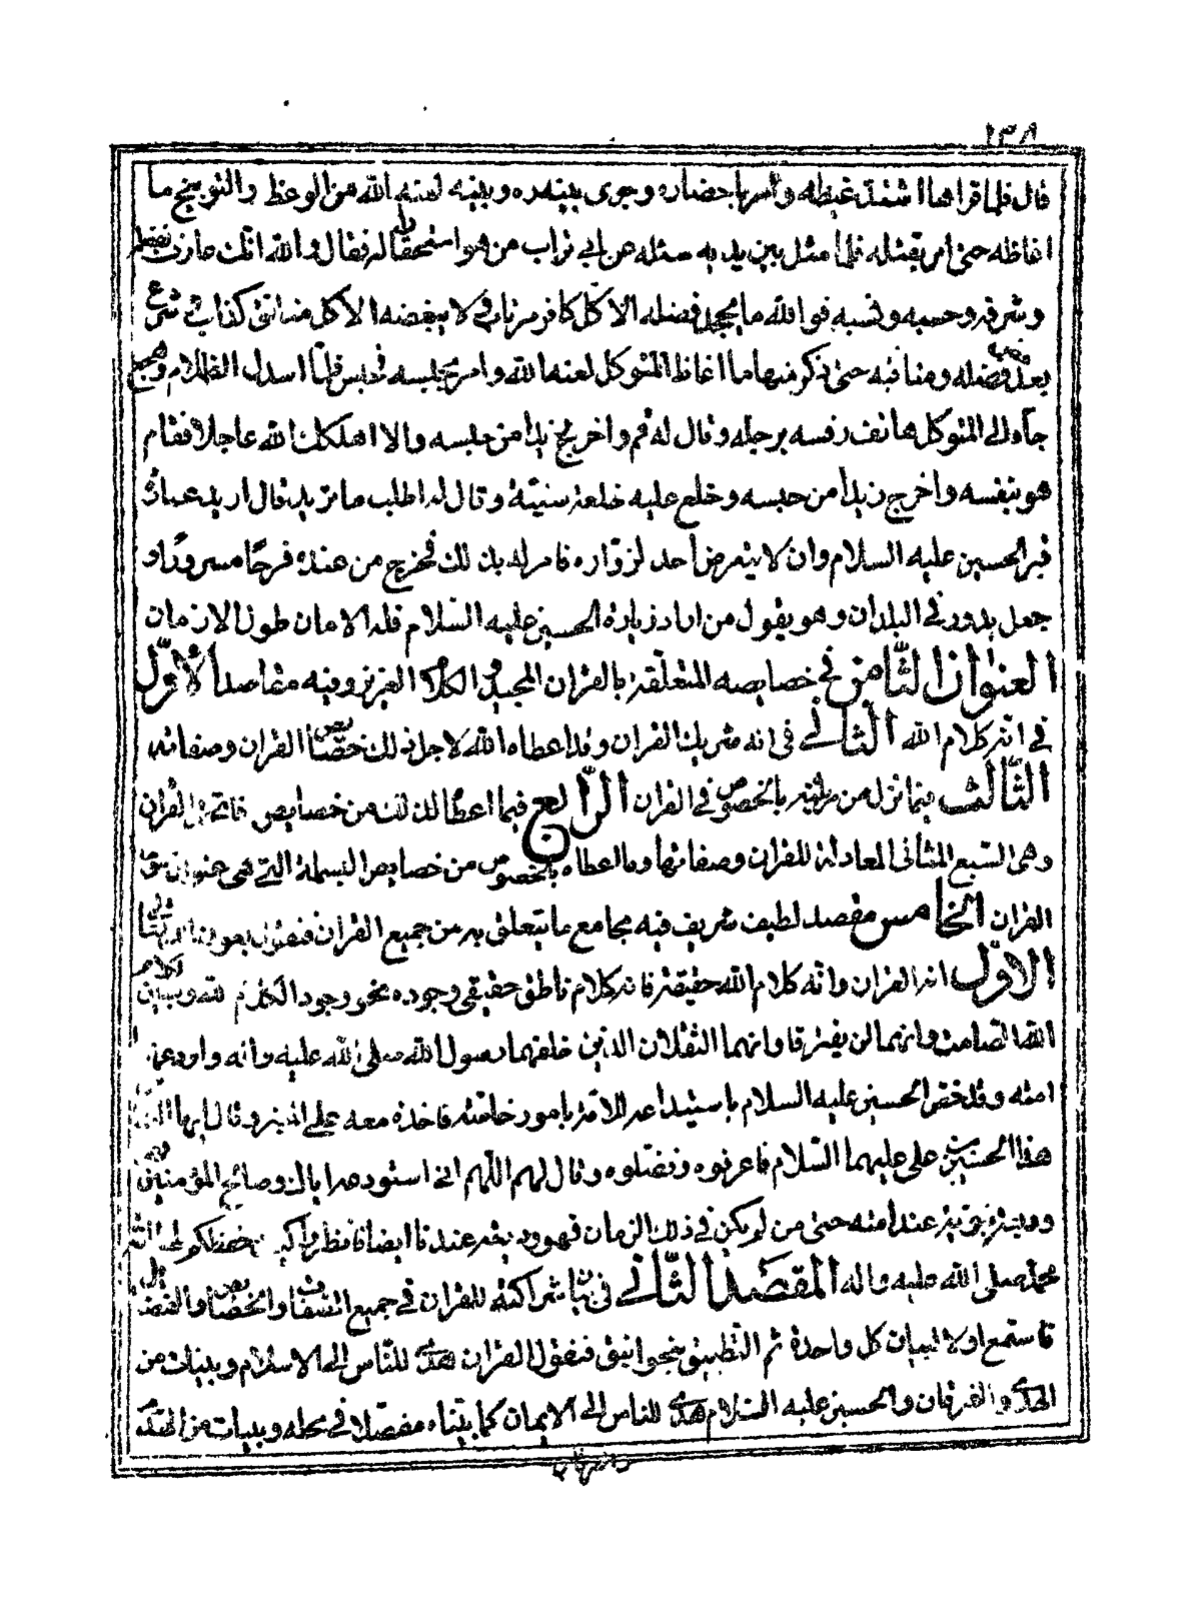 ١٣٨
قال فلما قراها اشتد غيظه وامر باحضاره وجرى بينه وبينه لعنه الله من الوعظ والتوبيخ ما
اغاظه حتى امر بقتله فلما مثل بين يديه سئله عن ابي تراب من هو استحقارا له فقال والله انك عارف بفضله
وشرفه وحسبه ونسبه فوالله ما يجحد فضله الا كل كافر مرتاب ولا يبغضه الا كل منافق كذاب وشرع
بعدد فضله ومناقبه حتى ذكر منها ما اغاظ المتوكل لعنه الله وامر بحبسه فحبس فلما اسدل الظلام وهجع
جاء الى المتوكل هاتف رفسه برجله وقال له قم واخرج زيدا من حبسه والا اهلكك الله عاجلا فقام
هو بنفسه واخرج زيدا من حبسه وخلع عليه خلعة سنيّة وقال له اطلب ما تريد قال اريد عمارة
قبر الحسين عليه السلام وان لا يتعرض احد لزواره فامر له بذلك فخرج من عنده فرحًا مسرورًا و
جعل يدور في البلدان وهو يقول من اراد زيارة الحسين عليه السلام فله الامان طول الازمان
العنوان الثّامن في خصايصه المتعلقة بالقران المجيد والكلام العزيز وفيه مقاصد الأوّل
في انه كلام الله الثاني في انه شريك القران وقد اعطاه الله لاجل ذلك خصائص القران وصفاته
الثّالث فيما نزل من مرثيته بالخصوص في القران الرّابع فيما اعطا لذلك من خصايص فاتحة القران
وهي السّبع المثاني المعادلة للقران وصفاتها وما اعطاه بالخصوص من خصايص البسملة التي هي عنوان سور
القران الخامس مقصد لطيف شريف فيه مجامع ما يتعلق به من جميع القران فنقول بعون الله تعالى
الاوّل انه القران وانه كلام الله حقيقة فانه كلام ناطق حقيقي وجوده نحو وجود الكلام لله وبين كلام
الله الصامت وانهما لن يفترقا وانهما الثقلان الذين خلفهما رسول الله صلى الله عليه واله واودعهما
امته وقد خص الحسين عليه السلام باستيداعه الامة بامور خاصّة فاخذه معه على المنبر وقال ايها الناس
هذا الحسين بن علي عليهما السّلام فاعرفوه وفضّلوه وقال لهم اللّهم اني استودعه اياك وصالح المؤمنين فهو
وديعة نبويّة عند امته حتى من لم يكن في ذلك الزمان فهو وديعة عندنا ايضا فانظروا كيف حفظكم لهذا
محمد صلى الله عليه واله المقصد الثّاني في بيان شراكته للقران في جميع الصفات والخصائص والفضائل
فاستمع اولا لبيان كل واحدة ثم التطبيق بنحو انيق فنقول القران هدى للنّاس الى الاسلام وبيّنات من
الهدى والفرقان والحسين عليه السلام هدى للناس الى الايمان كما بيّناه مفصّلا في محله وبينات من الهدى